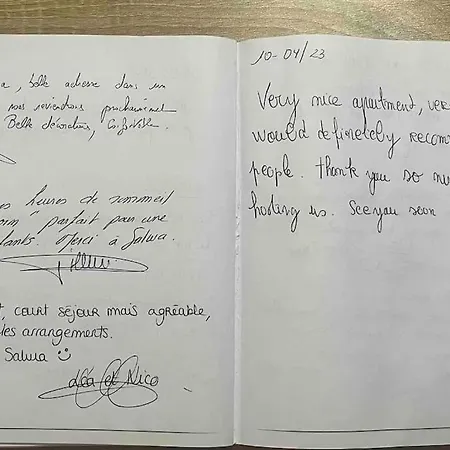 a, belle adresse dans un
nous reviendrons prochainement
Belle décoration,
es heures de sommeil
parfait pour une
Merci à Salwa.
court séjour mais agréable,
les arrangements.
Salwa
Léa et Nico
10-04/23
Very nice apartment, ver
would definetely recom
people. thank you so mu
hosting us. See you soon